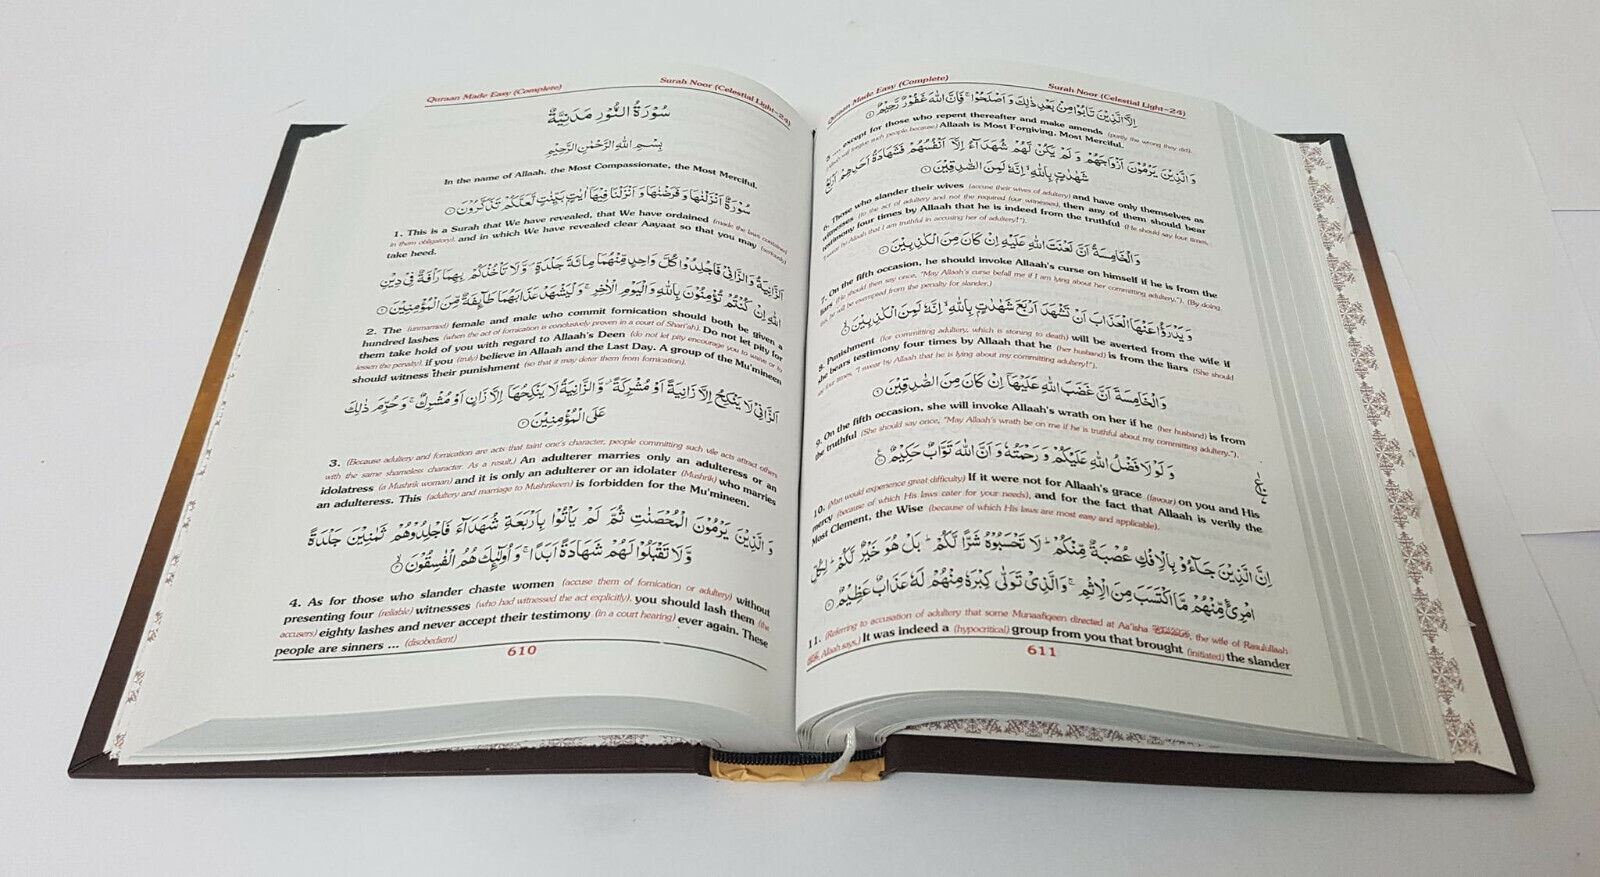 Quraan Made Easy (Complete) Surah Noor (Celestial Light-24)
سُوْرَةُ النُّوْرِ مَدَنِيَّةٌ
بِسْمِ اللهِ الرَّحْمٰنِ الرَّحِيْمِ
In the name of Allaah, the Most Compassionate, the Most Merciful.
سُوْرَةٌ اَنْزَلْنٰهَا وَفَرَضْنٰهَا وَاَنْزَلْنَا فِيْهَآ اٰيٰتٍۭ بَيِّنٰتٍ لَّعَلَّكُمْ تَذَكَّرُوْنَ ۝١
1. This is a Surah that We have revealed, that We have ordained (made the laws contained
in them obligatory), and in which We have revealed clear Aayaat so that you may (seriously)
take heed.
اَلزَّانِيَةُ وَالزَّانِيْ فَاجْلِدُوْا كُلَّ وَاحِدٍ مِّنْهُمَا مِائَةَ جَلْدَةٍ ۪ وَّلَا تَاْخُذْكُمْ بِهِمَا رَاْفَةٌ فِيْ دِيْنِ
اللهِ اِنْ كُنْتُمْ تُؤْمِنُوْنَ بِاللهِ وَالْيَوْمِ الْاٰخِرِ ۚ وَلْيَشْهَدْ عَذَابَهُمَا طَآئِفَةٌ مِّنَ الْمُؤْمِنِيْنَ ۝٢
2. The (unmarried) female and male who commit fornication should both be given a
hundred lashes (when the act of fornication is conclusively proven in a court of Shari'ah). Do not let pity for
them take hold of you with regard to Allaah's Deen (do not let pity encourage you to waive or to
lessen the penalty) if you (truly) believe in Allaah and the Last Day. A group of the Mu'mineen
should witness their punishment (so that it may deter them from fornication).
اَلزَّانِيْ لَا يَنْكِحُ اِلَّا زَانِيَةً اَوْ مُشْرِكَةً ۫ وَّالزَّانِيَةُ لَا يَنْكِحُهَآ اِلَّا زَانٍ اَوْ مُشْرِكٌ ۚ وَحُرِّمَ ذٰلِكَ
عَلَى الْمُؤْمِنِيْنَ ۝٣
3. (Because adultery and fornication are acts that taint one's character, people committing such vile acts attract others
with the same shameless character. As a result,) An adulterer marries only an adulteress or an
idolatress (a Mushrik woman) and it is only an adulterer or an idolater (Mushrik) who marries
an adulteress. This (adultery and marriage to Mushrikeen) is forbidden for the Mu'mineen.
وَالَّذِيْنَ يَرْمُوْنَ الْمُحْصَنٰتِ ثُمَّ لَمْ يَاْتُوْا بِاَرْبَعَةِ شُهَدَآءَ فَاجْلِدُوْهُمْ ثَمٰنِيْنَ جَلْدَةً
وَّلَا تَقْبَلُوْا لَهُمْ شَهَادَةً اَبَدًا ۚ وَاُولٰٓئِكَ هُمُ الْفٰسِقُوْنَ ۝٤
4. As for those who slander chaste women (accuse them of fornication or adultery) without
presenting four (reliable) witnesses (who had witnessed the act explicitly), you should lash them (the
accusers) eighty lashes and never accept their testimony (in a court hearing) ever again. These
people are sinners ... (disobedient)
610
Quraan Made Easy (Complete) Surah Noor (Celestial Light-24)
اِلَّا الَّذِيْنَ تَابُوْا مِنْۢ بَعْدِ ذٰلِكَ وَاَصْلَحُوْا ۚ فَاِنَّ اللهَ غَفُوْرٌ رَّحِيْمٌ ۝٥
5. ... except for those who repent thereafter and make amends (purify the wrong they did).
(Allaah will forgive such people because) Allaah is Most Forgiving, Most Merciful.
وَالَّذِيْنَ يَرْمُوْنَ اَزْوَاجَهُمْ وَلَمْ يَكُنْ لَّهُمْ شُهَدَآءُ اِلَّآ اَنْفُسُهُمْ فَشَهَادَةُ اَحَدِهِمْ اَرْبَعُ
شَهٰدٰتٍۭ بِاللهِ ۙ اِنَّهٗ لَمِنَ الصّٰدِقِيْنَ ۝٦
6. Those who slander their wives (accuse their wives of adultery) and have only themselves as
witnesses (to the act of adultery and not the required four witnesses), then any of them should bear
testimony four times by Allaah that he is indeed from the truthful (He should say four times,
by Allaah that I am truthful in accusing her of adultery!").
وَالْخَامِسَةُ اَنَّ لَعْنَتَ اللهِ عَلَيْهِ اِنْ كَانَ مِنَ الْكٰذِبِيْنَ ۝٧
7. On the fifth occasion, he should invoke Allaah's curse on himself if he is from the
liars (He should then say once, "May Allaah's curse befall me if I am lying about her committing adultery."). (By doing
this, he will be exempted from the penalty for slander.)
وَيَدْرَؤُا عَنْهَا الْعَذَابَ اَنْ تَشْهَدَ اَرْبَعَ شَهٰدٰتٍۭ بِاللهِ ۙ اِنَّهٗ لَمِنَ الْكٰذِبِيْنَ ۝٨
8. Punishment (for committing adultery, which is stoning to death) will be averted from the wife if
she bears testimony four times by Allaah that he (her husband) is from the liars (She should
say four times, "I swear by Allaah that he is lying about my committing adultery!").
وَالْخَامِسَةَ اَنَّ غَضَبَ اللهِ عَلَيْهَآ اِنْ كَانَ مِنَ الصّٰدِقِيْنَ ۝٩
9. On the fifth occasion, she will invoke Allaah's wrath on her if he (her husband) is from
the truthful (She should say once, "May Allaah's wrath be on me if he is truthful about my committing adultery.").
وَلَوْلَا فَضْلُ اللهِ عَلَيْكُمْ وَرَحْمَتُهٗ وَاَنَّ اللهَ تَوَّابٌ حَكِيْمٌ ۝١٠
10. (Man would experience great difficulty) If it were not for Allaah's grace (favour) on you and His
mercy (because of which His laws cater for your needs), and for the fact that Allaah is verily the
Most Clement, the Wise (because of which His laws are most easy and applicable).
اِنَّ الَّذِيْنَ جَآءُوْ بِالْاِفْكِ عُصْبَةٌ مِّنْكُمْ ۭ لَا تَحْسَبُوْهُ شَرًّا لَّكُمْ ۭ بَلْ هُوَ خَيْرٌ لَّكُمْ ۭ لِكُلِّ
امْرِئٍ مِّنْهُمْ مَّا اكْتَسَبَ مِنَ الْاِثْمِ ۚ وَالَّذِيْ تَوَلّٰى كِبْرَهٗ مِنْهُمْ لَهٗ عَذَابٌ عَظِيْمٌ ۝١١
11. (Referring to accusation of adultery that some Munaafiqeen directed at Aa'isha, the wife of Rasulullaah
Allaah says,) It was indeed a (hypocritical) group from you that brought (initiated) the slander
611